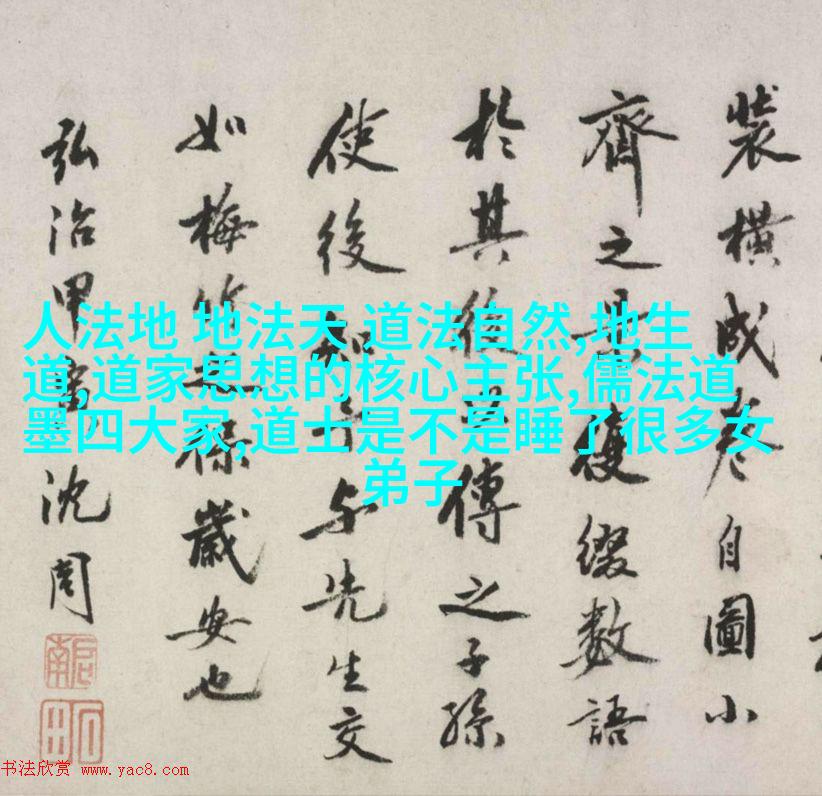 裝橫成卷自圖小
齊之復綴數語
於其後傳之子孫
使後知与先生交
如梅竹保歲安也
弘治甲寅沈周
啟南
石田
人法地 地法天 道法自然,地生
道,道家思想的核心主张,儒法道
墨四大家,道士是不是睡了很多女
弟子
书法欣赏 www.yac8.com